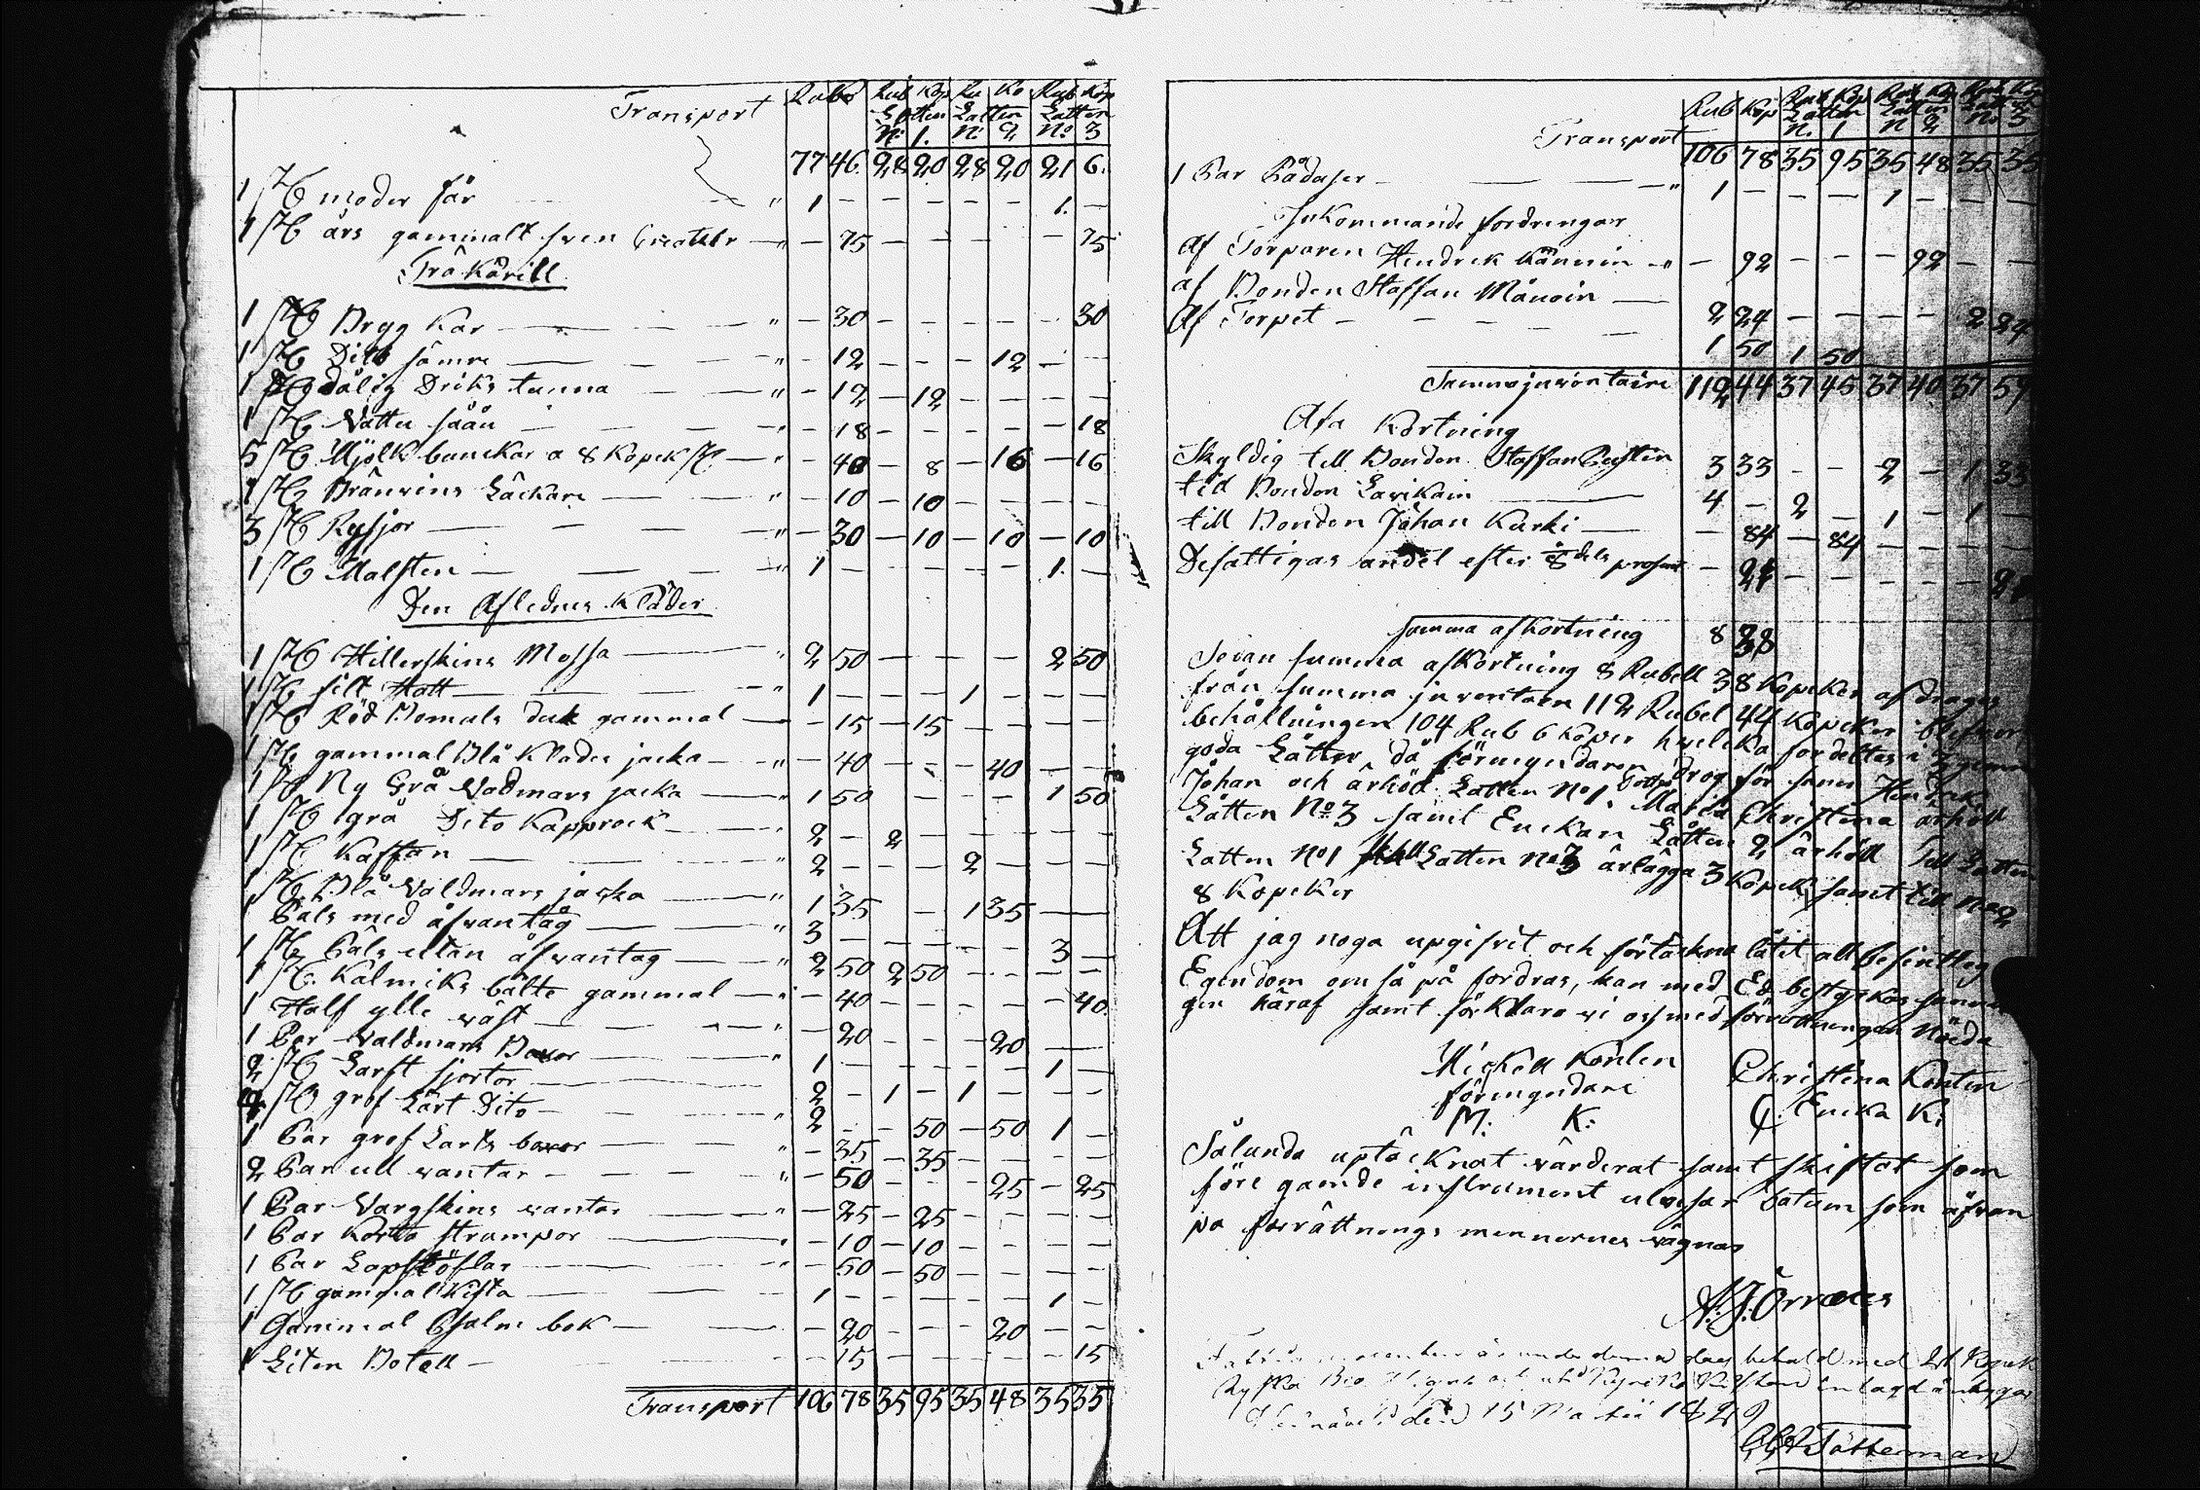 Transport Rub Ko Rub Kop Ru Ko Rub Kop
Lotten Lotten Lotten
No 1. No 2 No 3
77 46 28 20 28 20 21 6.
1 St moder får — " 1 – – – – – 1. –
1 St års gammalt — " – 75 – – – – – 75
Träkärill
1 St Bryg Kar — " – 30 – – – – 30
1 St Dito sämre — " – 12 – – – 12 – –
1 St dålig Driks tunna — " – 12 – 12 – – – –
1 St Vatten såån — " – 18 – – – – – 18
5 St Mjölk bunckar a 8 Kopek St. — " – 40 – 8 – 16 – 16
1 St Bränvins Läckare — " – 10 – 10 – – – –
3 St Rysjor — " – 30 – 10 – 10 – 10
1 St Malsten — " 1 – – – – – 1. –
Den Aflednes Kläder
1 St Hillerskins Mössa — " 2 50 – – – – 2 50
1 St filt Hatt — " 1 – – – 1 – – –
1 St Röd Bomuls duk gammal — – 15 – 15 – – – –
1 St gammal Blå Klädes jacka — " – 40 – – – 40 – –
1 St Ny Grå Vadmars jacka — " 1 50 – – – – 1 50
1 St grå Dito Kapprock — " 2 – 2 – – – – –
1 St Kafftan — " 2 – – – 2 – – –
1 St Blå Valdmars jacka — " 1 35 – – 1 35 – –
1 Päls med åfvantåg — " 3 – – – – – 3 –
1 St Päls utan åfvantag — " 2 50 2 50 – – – –
1 St. Kalmiks bälte gammal — " – 40 – – – – – 40
1 Half ylle väst — " – 20 – – – 20 – –
1 Par Valdmars Boxor — " 1 – – – – – 1 –
2 St Larft sjortor — 2 – 1 – 1 – – –
4 St grof Lärt Dito — " 2 – – 50 – 50 1 –
1 Par grof Larts boxor — " – 35 – 35 – – – –
2 Par ull vantar — " – 50 – – – 25 – 25
1 Par Vargskins vantar — " – 25 – 25 – – – –
1 Par Korta strumpor — " – 10 – 10 – – – –
1 Par Lapstöflar — " – 50 – 50 – – – –
1 St gammal Kista — 1 – – – – – 1 –
1 Gammal Psalm bok — – 20 – – – 20 – –
1 Liten Botell — – 15 – – – – – 15
Transport 106 78 35 95 35 48 35 35
Rub Kop Rub Kop Rub Kop Rub Ko
Lotten Lotten Lott
No. 1 N 2 No 3
Transport 106 78 35 95 35 48 35 35
1 Par — " 1 – – – 1 – – –
Inkommande fordringar
Af Torparen Hendrek — " – 92 – – – 92 – –
af Bonden Staffan — 2 24 – – – – 2 24
Af Torpet — 1 50 1 50
Summa juventaire 112 44 37 45 37 40 37 59
Afa Kortning
Skyldig till Bonden Staffan 3 33 – – 2 – 1 33
till Bonden Lavikain — 4 – 2 – 1 – 1 –
till Bonden Johan Kurki — – 84 – 84 – – – –
Defattigas andel efter 8 dels prosent – 21 – – – – – 21
Summa afkortning 8 38
Sedan summa afkortning 8 Rubell 38 Kopeker afdrages
från summa juventaren 112 Rubel 44 Kopeker blifver
behållningen 104 Rub 6 Kopek hvilcka fördeltes i 3 gema
goda Lotter då förmyndaren drog för sonen Hendrek
Johan och ärhöll Lotten No 1. Dottren Maria Christina ärhöll
Lotten No 3 samt Enckan Lotten 2 ärhöll Till Lotten
Lotten No 1 Lotten No 3 ärlägga 3 Kopek samt till No 2
8 Kopeker
Att jag noga upgifvit och förtäckna låtit all befintlig
Egendom om så på fordras, kan med Ed bestyrkas
gen häraf samt förklara vi oss med förrättningen nöida
Mickell Kontin Christina Kontin
förmyndare Encka K:
M: K:
Sålunda uptäcknat värderat samt skiftat som
före gående instrument utvisar Datum som åfvan
på förrättnings mennernes vägnar
A. J. Orræus
denna dag behald med 21 Kopek
den 15 Martii 1829
Tötterman